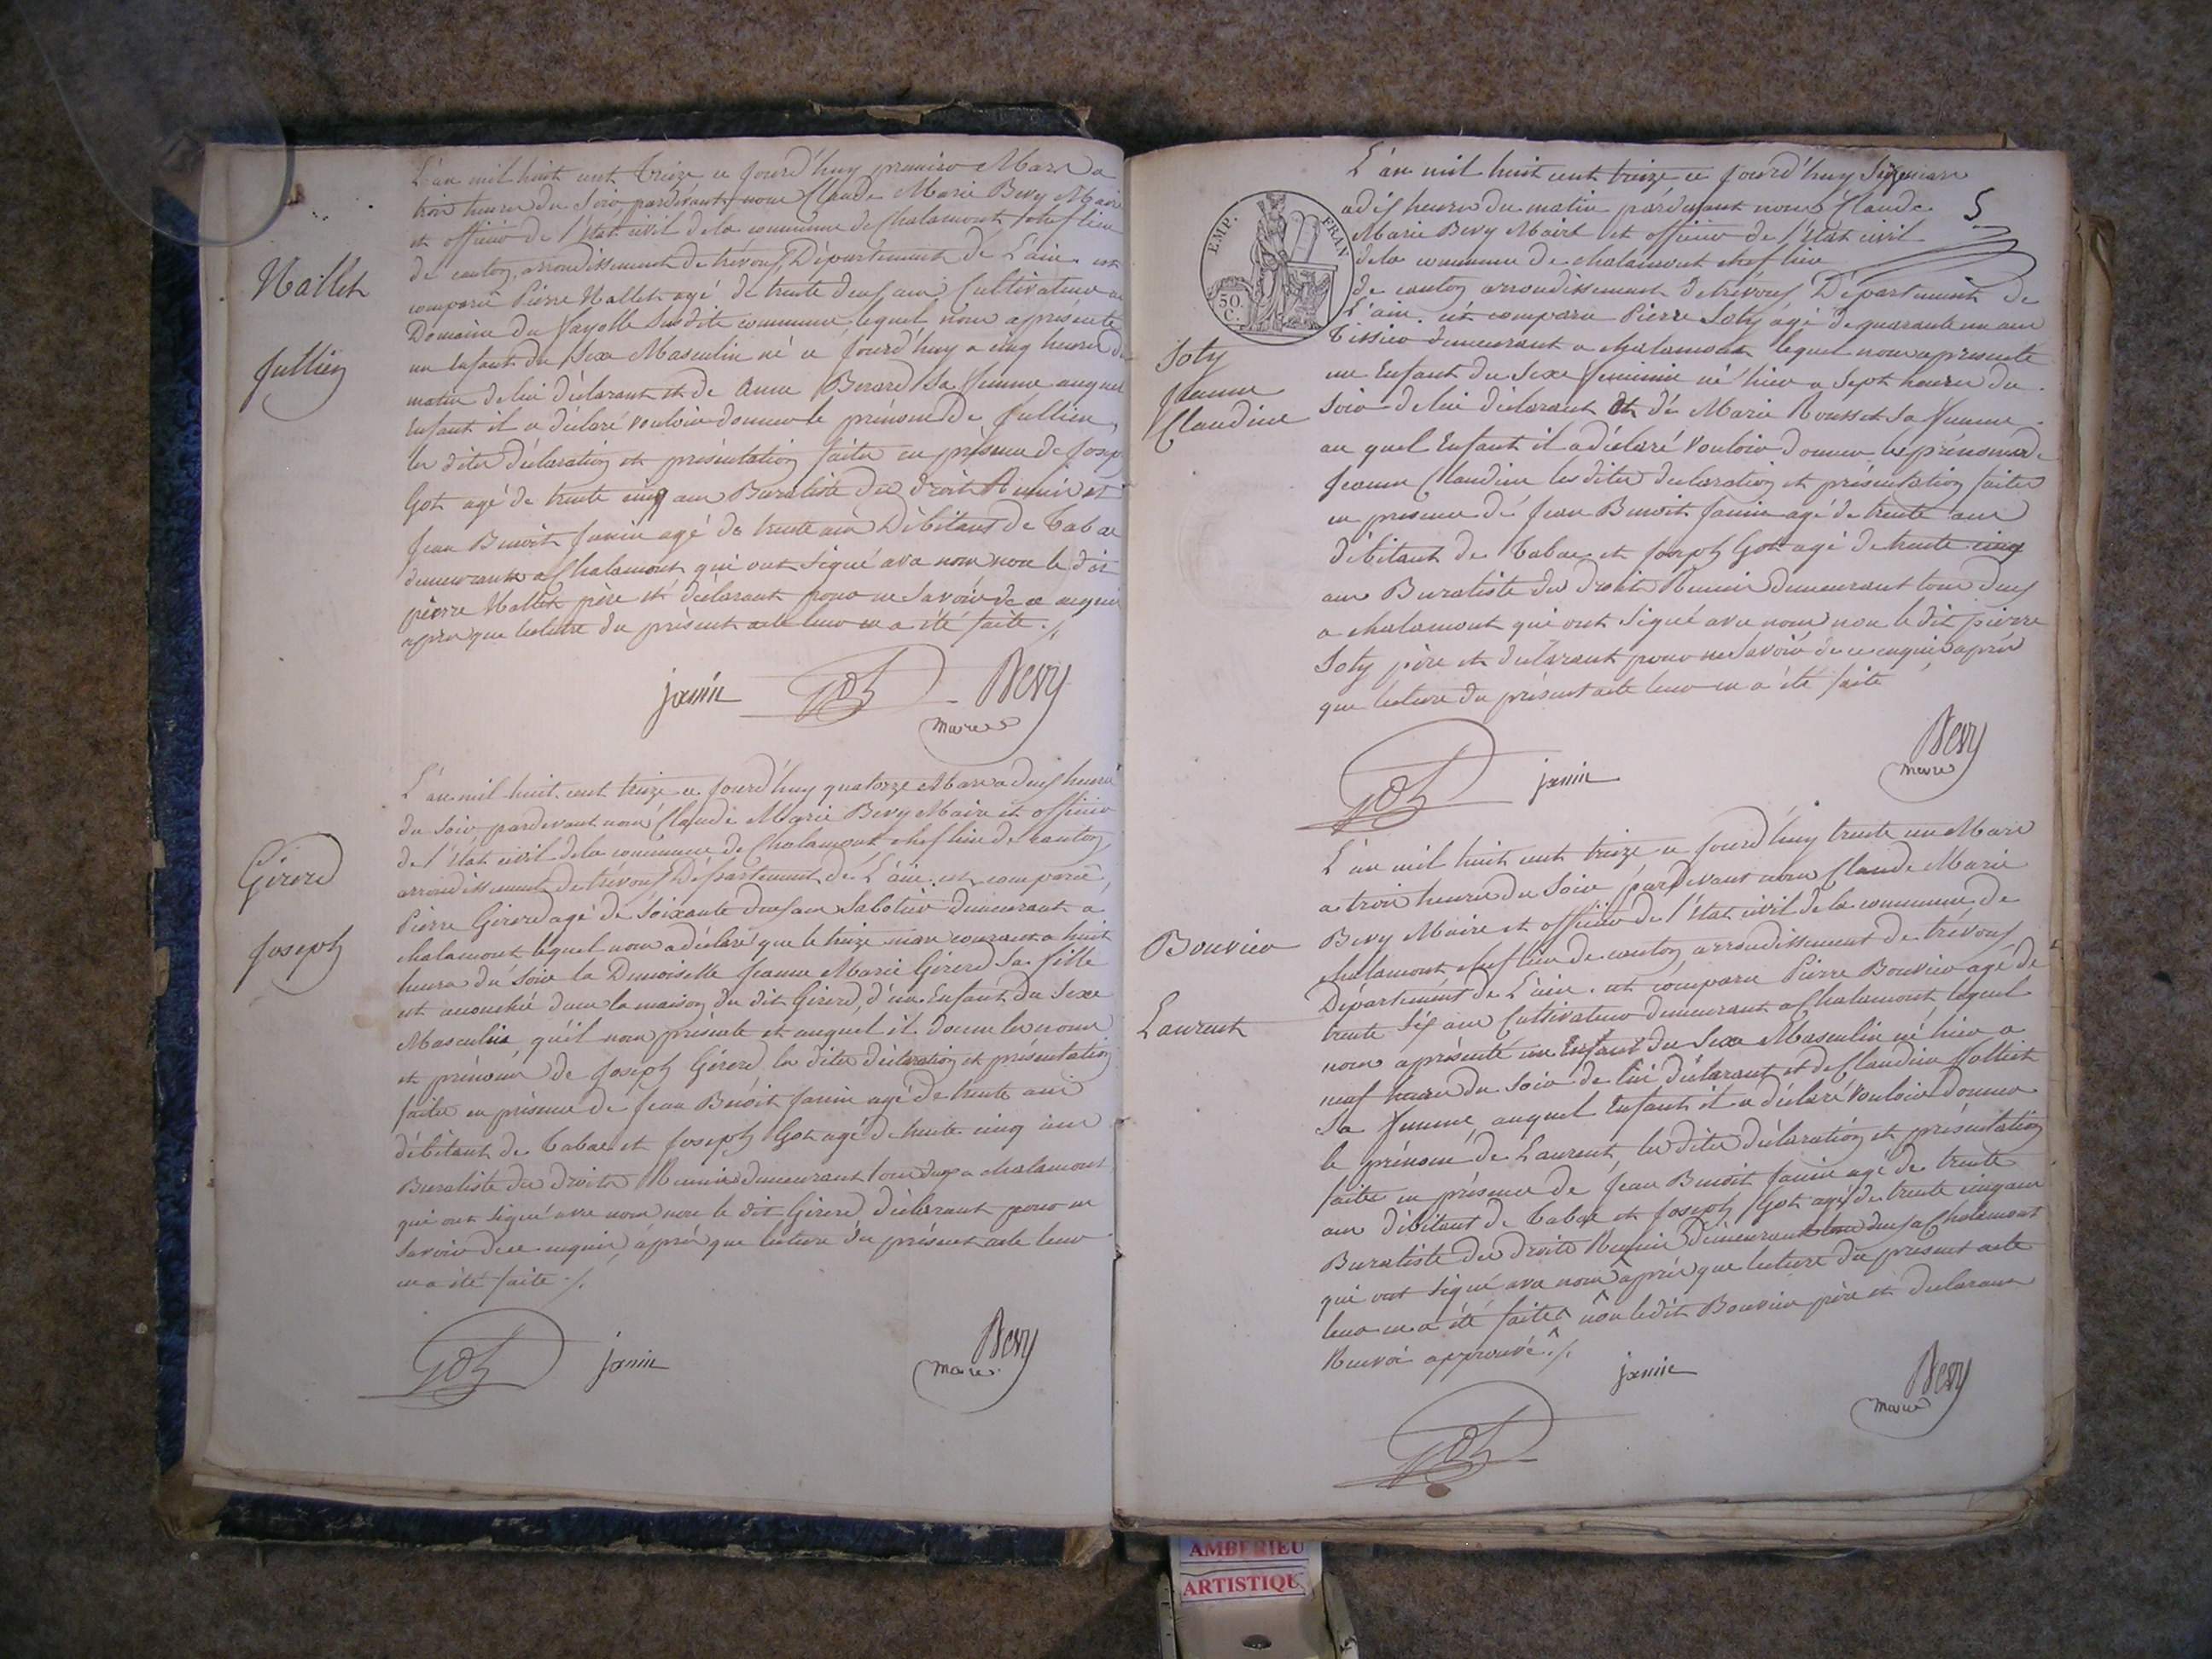 L'an mil huit cent treize ce jourd'huy premier Mars a
trois heures du soir pardevant nous Claude Marie Bevy Maire
et officier de l'état civil de la commune de Chalamont chef lieu
de canton, arrondissement de trévoux, Département de L'ain est
comparu Pierre Nallet agé de trente deux ans Cultivateur au
Domaine du fayolle susdite commune, lequel nous a présenté
un Enfant du Sexe Masculin né ce jourd'huy a cinq heures du
matin de lui déclarant et de Anne Berard sa femme auquel
Enfant il a déclaré vouloir donner le prénom de Jullien,
les dites déclaration et présentation faites en présence de Josep
Got agé de trente cinq ans Buraliste des droits Réunis et
Jean Benoit Janin agé de trente ans Débitant de Tabac
demeurants a Chalamont qui ont signé avec nous non le dit
pierre Nallet père et déclarant pour ne savoir de ce enquis
après que lecture du présent acte leur en a été faite ./.
Nallet
Jullien
janin Got Bevy
Maire
L'an mil huit cent treize ce jourd'huy quatorze Mars a deux heures
du soir pardevant nous Claude Marie Bevy Maire et officier
de l'état civil de la commune de Chalamont chef lieu de canton,
arrondissement de trévoux Département de L'ain est comparu,
Pierre Girerd agé de soixante deux ans Sabotier demeurant a
chalamont lequel nous a déclaré que le treize mars courant a huit
heures du soir la Demoiselle Jeanne Marie Girerd sa fille
est accouchée dans la maison du dit Girerd, d'un Enfant du Sexe
Masculin qu'il nous présente et auquel il donne les noms
et prénoms de Joseph Girerd les dites déclaration et présentation
faites en présence de Jean Benoit Janin agé de trente ans
débitant de Tabac et Joseph Got agé de trente cinq ans
Buraliste des droits Réunis demeurant tous deux a chalamont
qui ont signé avec nous non le dit Girerd déclarant pour ne
savoir de ce enquis, après que lecture du présent acte leur
en a été faite ./.
Girerd
Joseph
Got janin Bevy
Maire
5
EMP. FRAN
50.
C.
L'an mil huit cent treize ce jourd'huy Six mars
a dix heures du matin pardevant nous Claude
Marie Bevy Maire et officier de l'état civil
de la commune de chalamont chef lieu
de canton arrondissement de trévoux, Département de
L'ain est comparu Pierre Soty agé de quarante un ans
Tissier demeurant a chalamont lequel nous a presenté
un Enfant du Sexe feminin né hier a Sept heures du
soir de lui déclarant et de Marie Rousset sa femme
au quel Enfant il a déclaré vouloir donner les prénoms de
Jeanne Claudine les dites declaration et présentation faites
en presence de Jean Benoit Janin agé de trente ans
débitant de Tabac et Joseph Got agé de trente cinq
ans Buraliste des droits Réunis demeurant tous deux
a chalamont qui ont signé avec nous non le dit pierre
Soty père et déclarant pour ne savoir de ce enquis après
que lecture du présent acte leur en a été faite
Soty
Jeanne
Claudine
Got janin Bevy
Maire
L'an mil huit cent treize ce jourd'huy trente un Mars
a trois heures du soir pardevant nous Claude Marie
Bevy Maire et officier de l'état civil de la commune de
chalamont chef lieu de canton arrondissement de trévoux
Département de L'ain, est comparu Pierre Bouvier agé de
trente Six ans Cultivateur demeurant a Chalamont, lequel
nous a présenté un Enfant du Sexe Masculin né hier a
neuf heures du soir de lui déclarant et de Claudine
sa femme, auquel Enfant il a déclaré vouloir donner
le prénom de Laurent, les dites déclaration et présentation
faites en présence de Jean Benoit Janin agé de trente
ans débitant de Tabac et Joseph Got agé de trente cinq ans
Buraliste des droits Réunis demeurant tous deux a Chalamont
qui ont signé avec nous ^ après que lecture du present acte
leur en a été faite ^ non le dit Bouvier père et declarant
Renvoi approuvé ./.
Bouvier
Laurent
janin
Got Bevy
Maire
AMBERIEU
ARTISTIQU